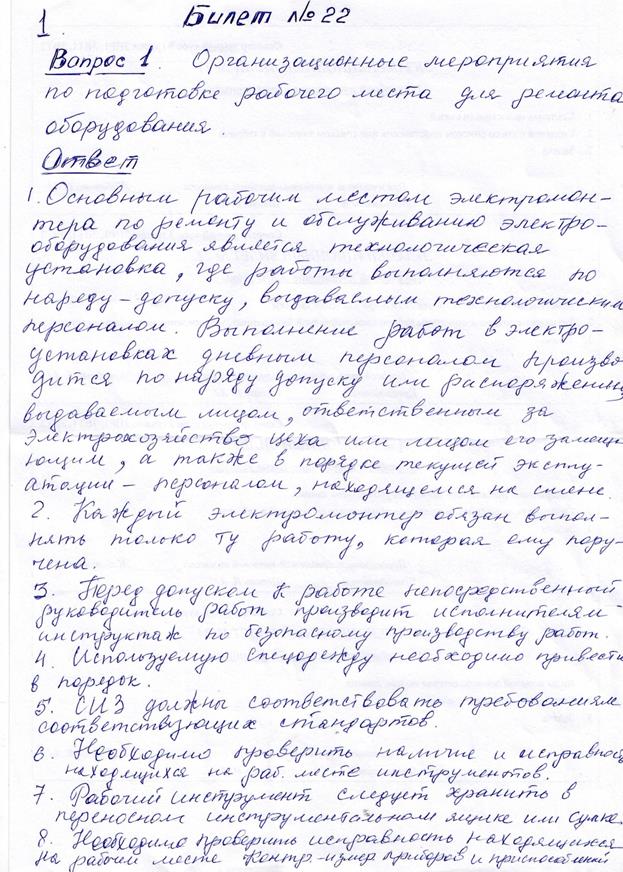 1
Билет № 22
Вопрос 1. Организационные мероприятия
по подготовке рабочего места для ремонта
оборудования.
Ответ
1. Основным рабочим местом электромон-
тера по ремонту и обслуживанию электро-
оборудования является технологическая
установка, где работы выполняются по
наряду-допуску, выдаваемым технологическим
персоналом. Выполнение работ в электро-
установках дневным персоналом произво-
дится по наряду допуску или распоряжению,
выдаваемым лицом, ответственным за
электрохозяйство цеха или лицом его замещ-
ющим, а также в порядке текущей эксплу-
атации – персоналом, находящемся на смене.
2. Каждый электромонтер обязан выпол-
нять только ту работу, которая ему пору-
чена.
3. Перед допуском к работе непосредственный
руководитель работ производит исполнителям
инструктаж по безопасному производству работ.
4. Используемую спецодежду необходимо привести
в порядок.
5. СИЗ должны соответствовать требованиям
соответствующих стандартов.
6. Необходимо проверить наличие и исправность
находящихся на раб. месте инструментов.
7. Рабочий инструмент следует хранить в
переносном инструментальном ящике или сумке.
8. Необходимо проверить исправность находящихся
на рабочем месте контр.-измер приборов и приспособлений